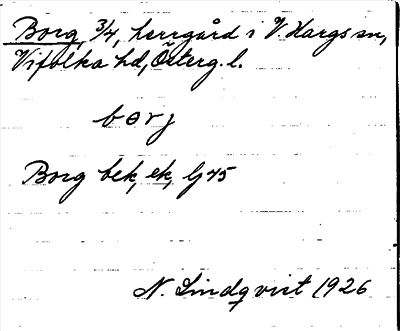 Borg, 3/4, herrgård i V. Hargs sn,
Vifolka hd, Österg. l.
borj
Borg bek, ek, lj 45
N. Lindqvist 1926